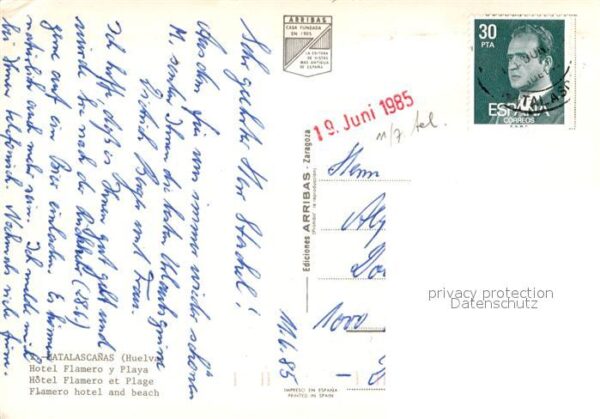 ARRIBAS
CASA FUNDADA
EN 1905
LA EDITORA
DE VISTAS
MAS ANTIGUA
DE ESPAÑA
30
PTA
ESPAÑA
CORREOS
19. Juni 1985
n/z tel.
Sehr geehrter Herr Stachel!
Aus dem für uns immer wieder schönen
M. senden Ihnen die besten Urlaubsgrüße
Dietrich und Frau.
Ich hoffe daß es Ihnen gut geht und
würde Sie nach der Rückkehr (28.6)
gerne auf ein Bier einladen. Es können
natürlich auch mehr sein. Ich melde mich
bei Ihnen telefonisch. Nochmals viele Grüße.
11.6.85
Ediciones ARRIBAS - Zaragoza
(Prohibida la reproducción)
Herrn
1000
MATALASCAÑAS (Huelva)
Hotel Flamero y Playa
Hôtel Flamero et Plage
Flamero hotel and beach
IMPRESO EN ESPAÑA
PRINTED IN SPAIN
privacy protection
Datenschutz